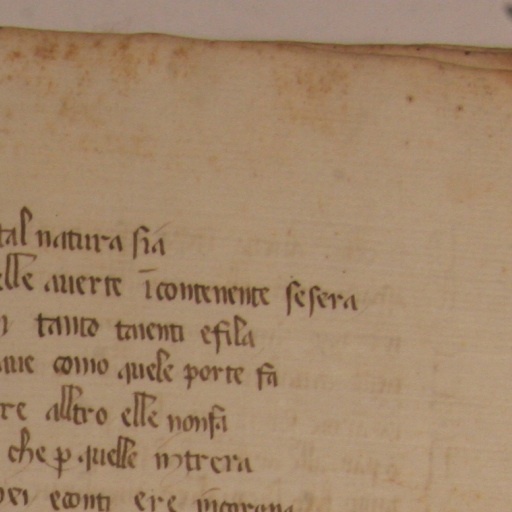 tal natura sia
elle averte īcontenente sesera
tanto taienti efila
como quele porte fa
re alltro elle nonfa
che ꝑ quelle intrera
econti ere